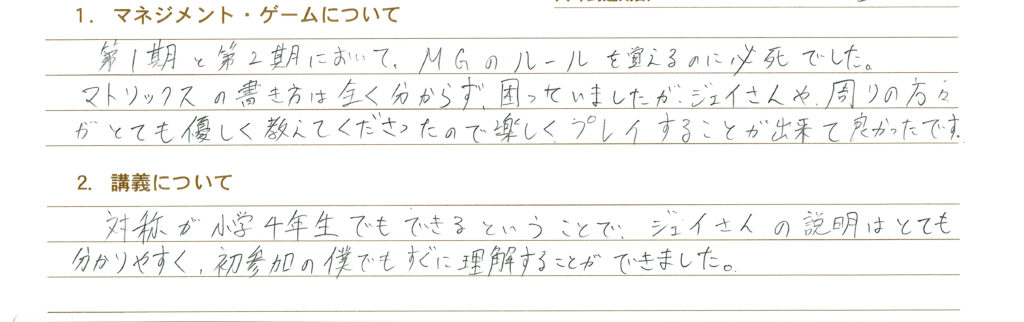 1. マネジメント・ゲームについて
第1期と第2期において、MGのルールを覚えるのに必死でした。
マトリックスの書き方は全く分からず、困っていましたが、ジェイさんや、周りの方々
がとても優しく教えてくださったので楽しくプレイすることが出来て良かったです。
2. 講義について
対称が小学4年生でもできるということで、ジェイさんの説明はとても
分かりやすく、初参加の僕でもすぐに理解することができました。